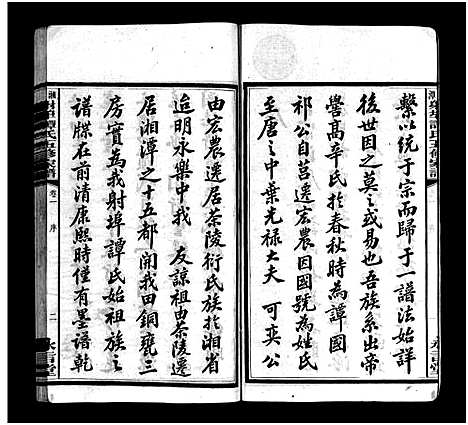 繫以統于宗而歸于一譜法始詳
後世因之莫之或易也吾族系出帝
嚳高辛氏於春秋時為譚國
祁公自莒遷宏農因國號為姓氏
至唐之中葉光祿大夫 可奕公
由宏農遷居茶陵衍氏族於湘省
迨明永樂中我 友諒祖由茶陵遷
居湘潭之十五都開我田銅甕三
房實為我射埠譚氏始祖族之
譜牒在前清康熙時僅有墨譜乾
氏五修
卷一 序
二